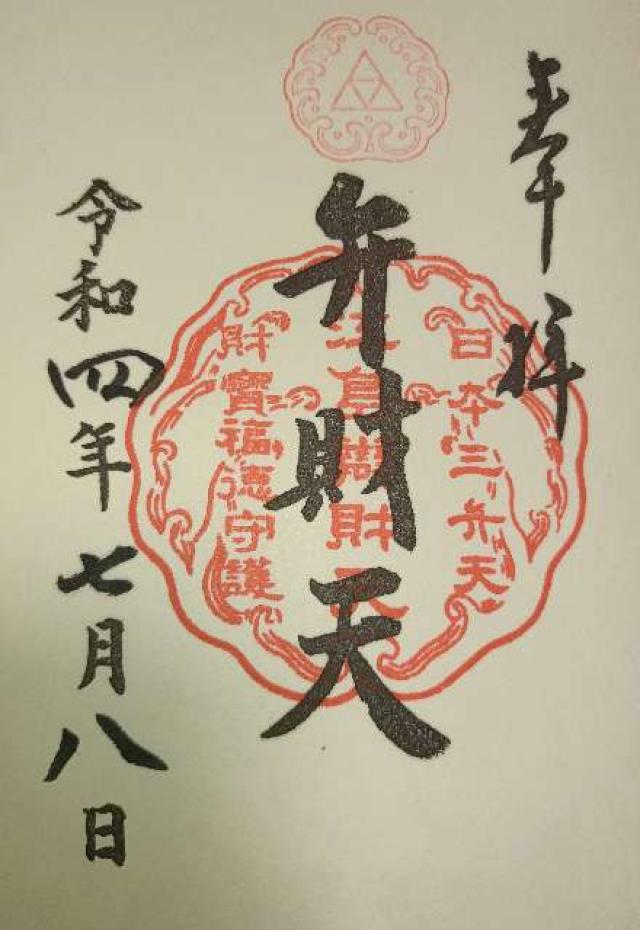 奉拝
日本三弁天
江島辨財天
財寶福徳守護
弁財天
令和四年七月八日